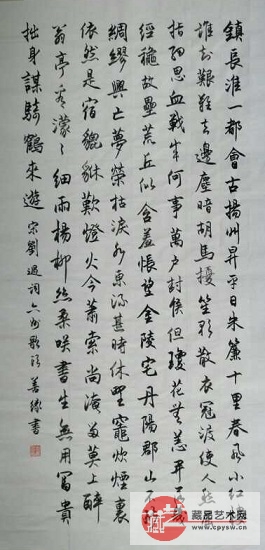 鎮長淮一都會古揚州昇平日朱簾十里春風小紅樓
誰知艱難去邊塵暗胡馬擾笙歌散衣冠渡使人愁屈
指細思血戰成何事萬戶封侯但瓊花無恙開落幾
經穐故壘荒丘似含羞悵望金陵宅丹陽郡山不斷
綢繆興亡夢榮枯淚水東流甚時休野竈炊煙裏
依然是宿貔貅歎燈火今蕭索尚淹留莫上醉
翁亭看濛〻細雨楊柳絲柔咲書生無用富貴
拙身謀騎鶴來遊 宋劉過詞六州歌頭 善緣書
藏品艺术网